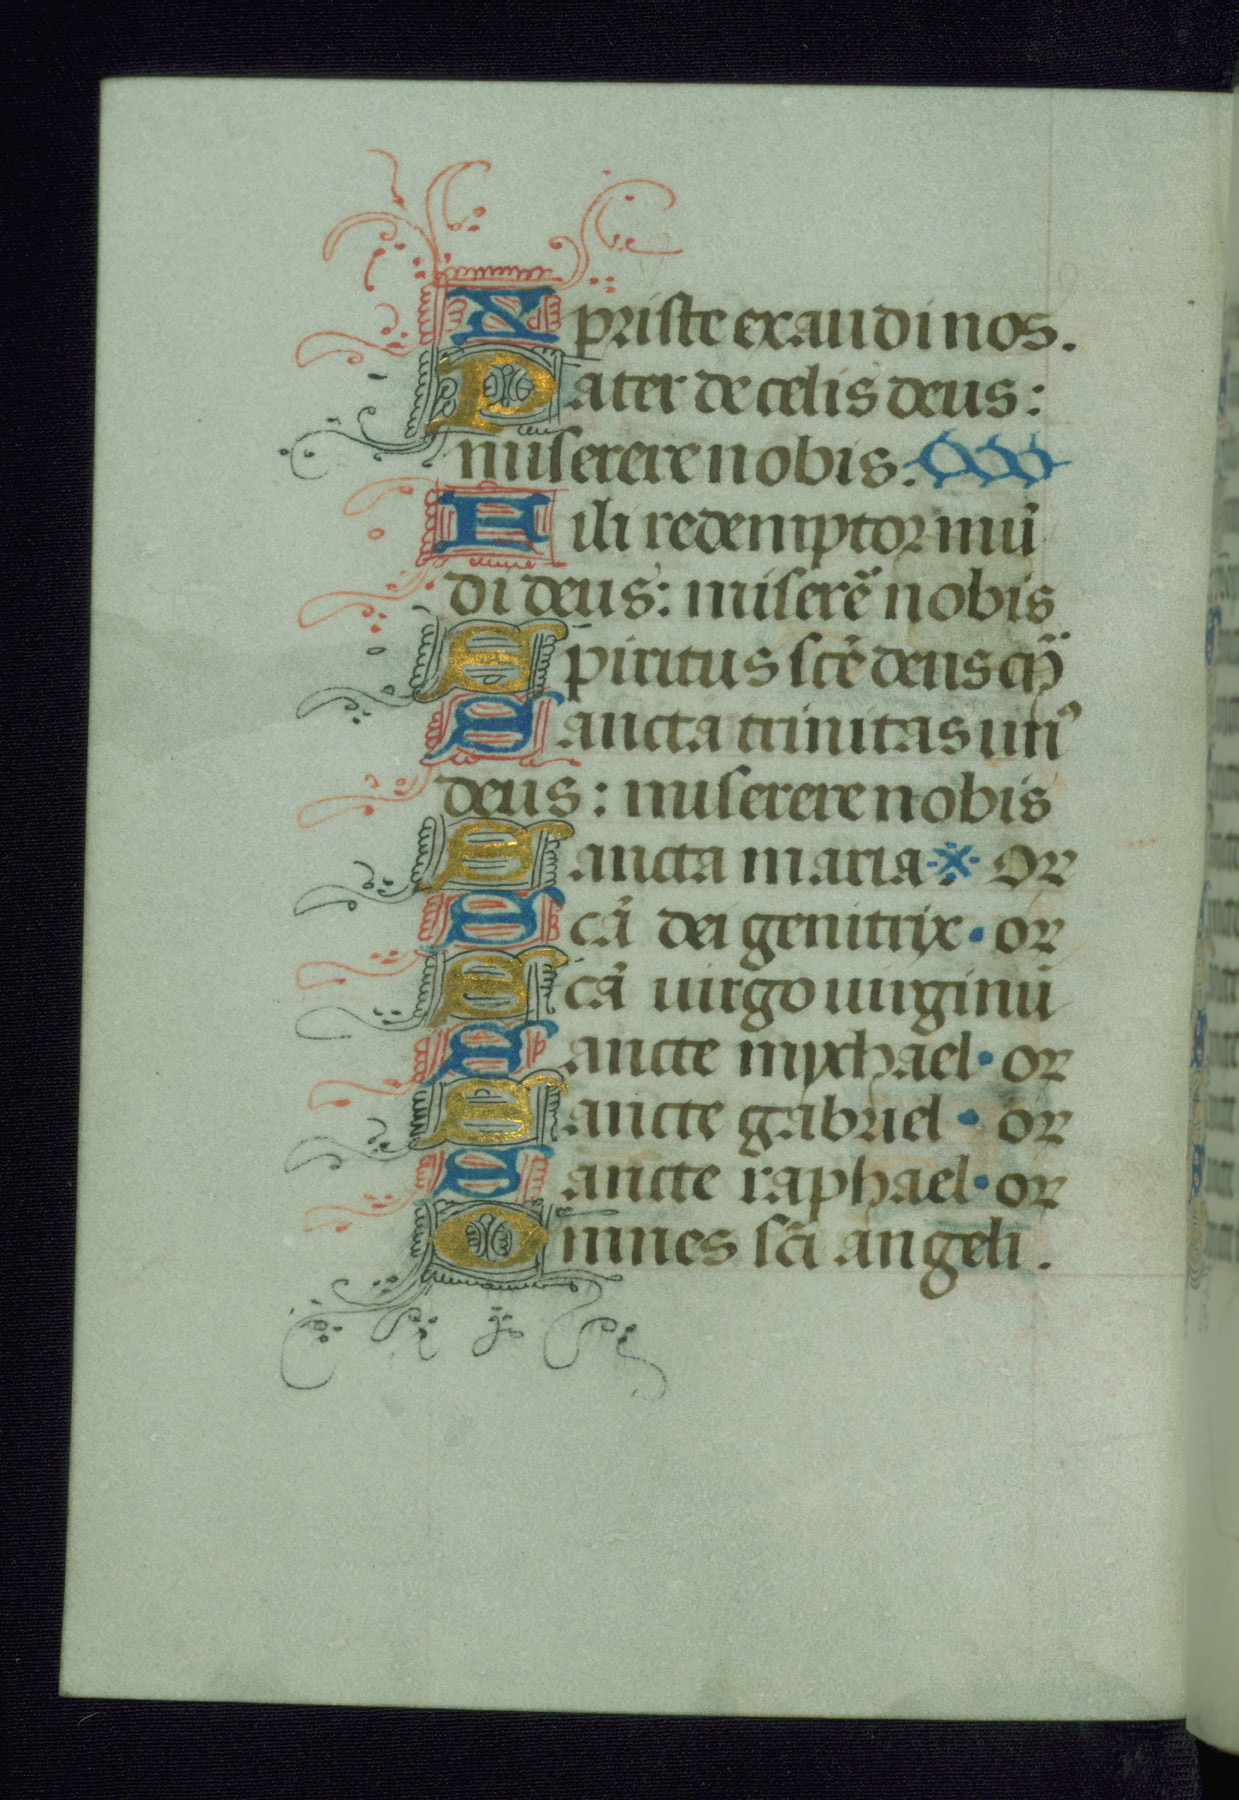 Xpriste exaudi nos.
Pater de celis deus:
miserere nobis.
Fili redemptor mū
di deus: miserē nobis
Spiritus scē deus
Sancta trinitas un⁹
deus: miserere nobis
Sancta maria. or
Scā dei genitrix. or
Scā uirgo uirginū
Sancte mychael. or
Sancte gabriel. or
Sancte raphael. or
Omnes scī angeli.